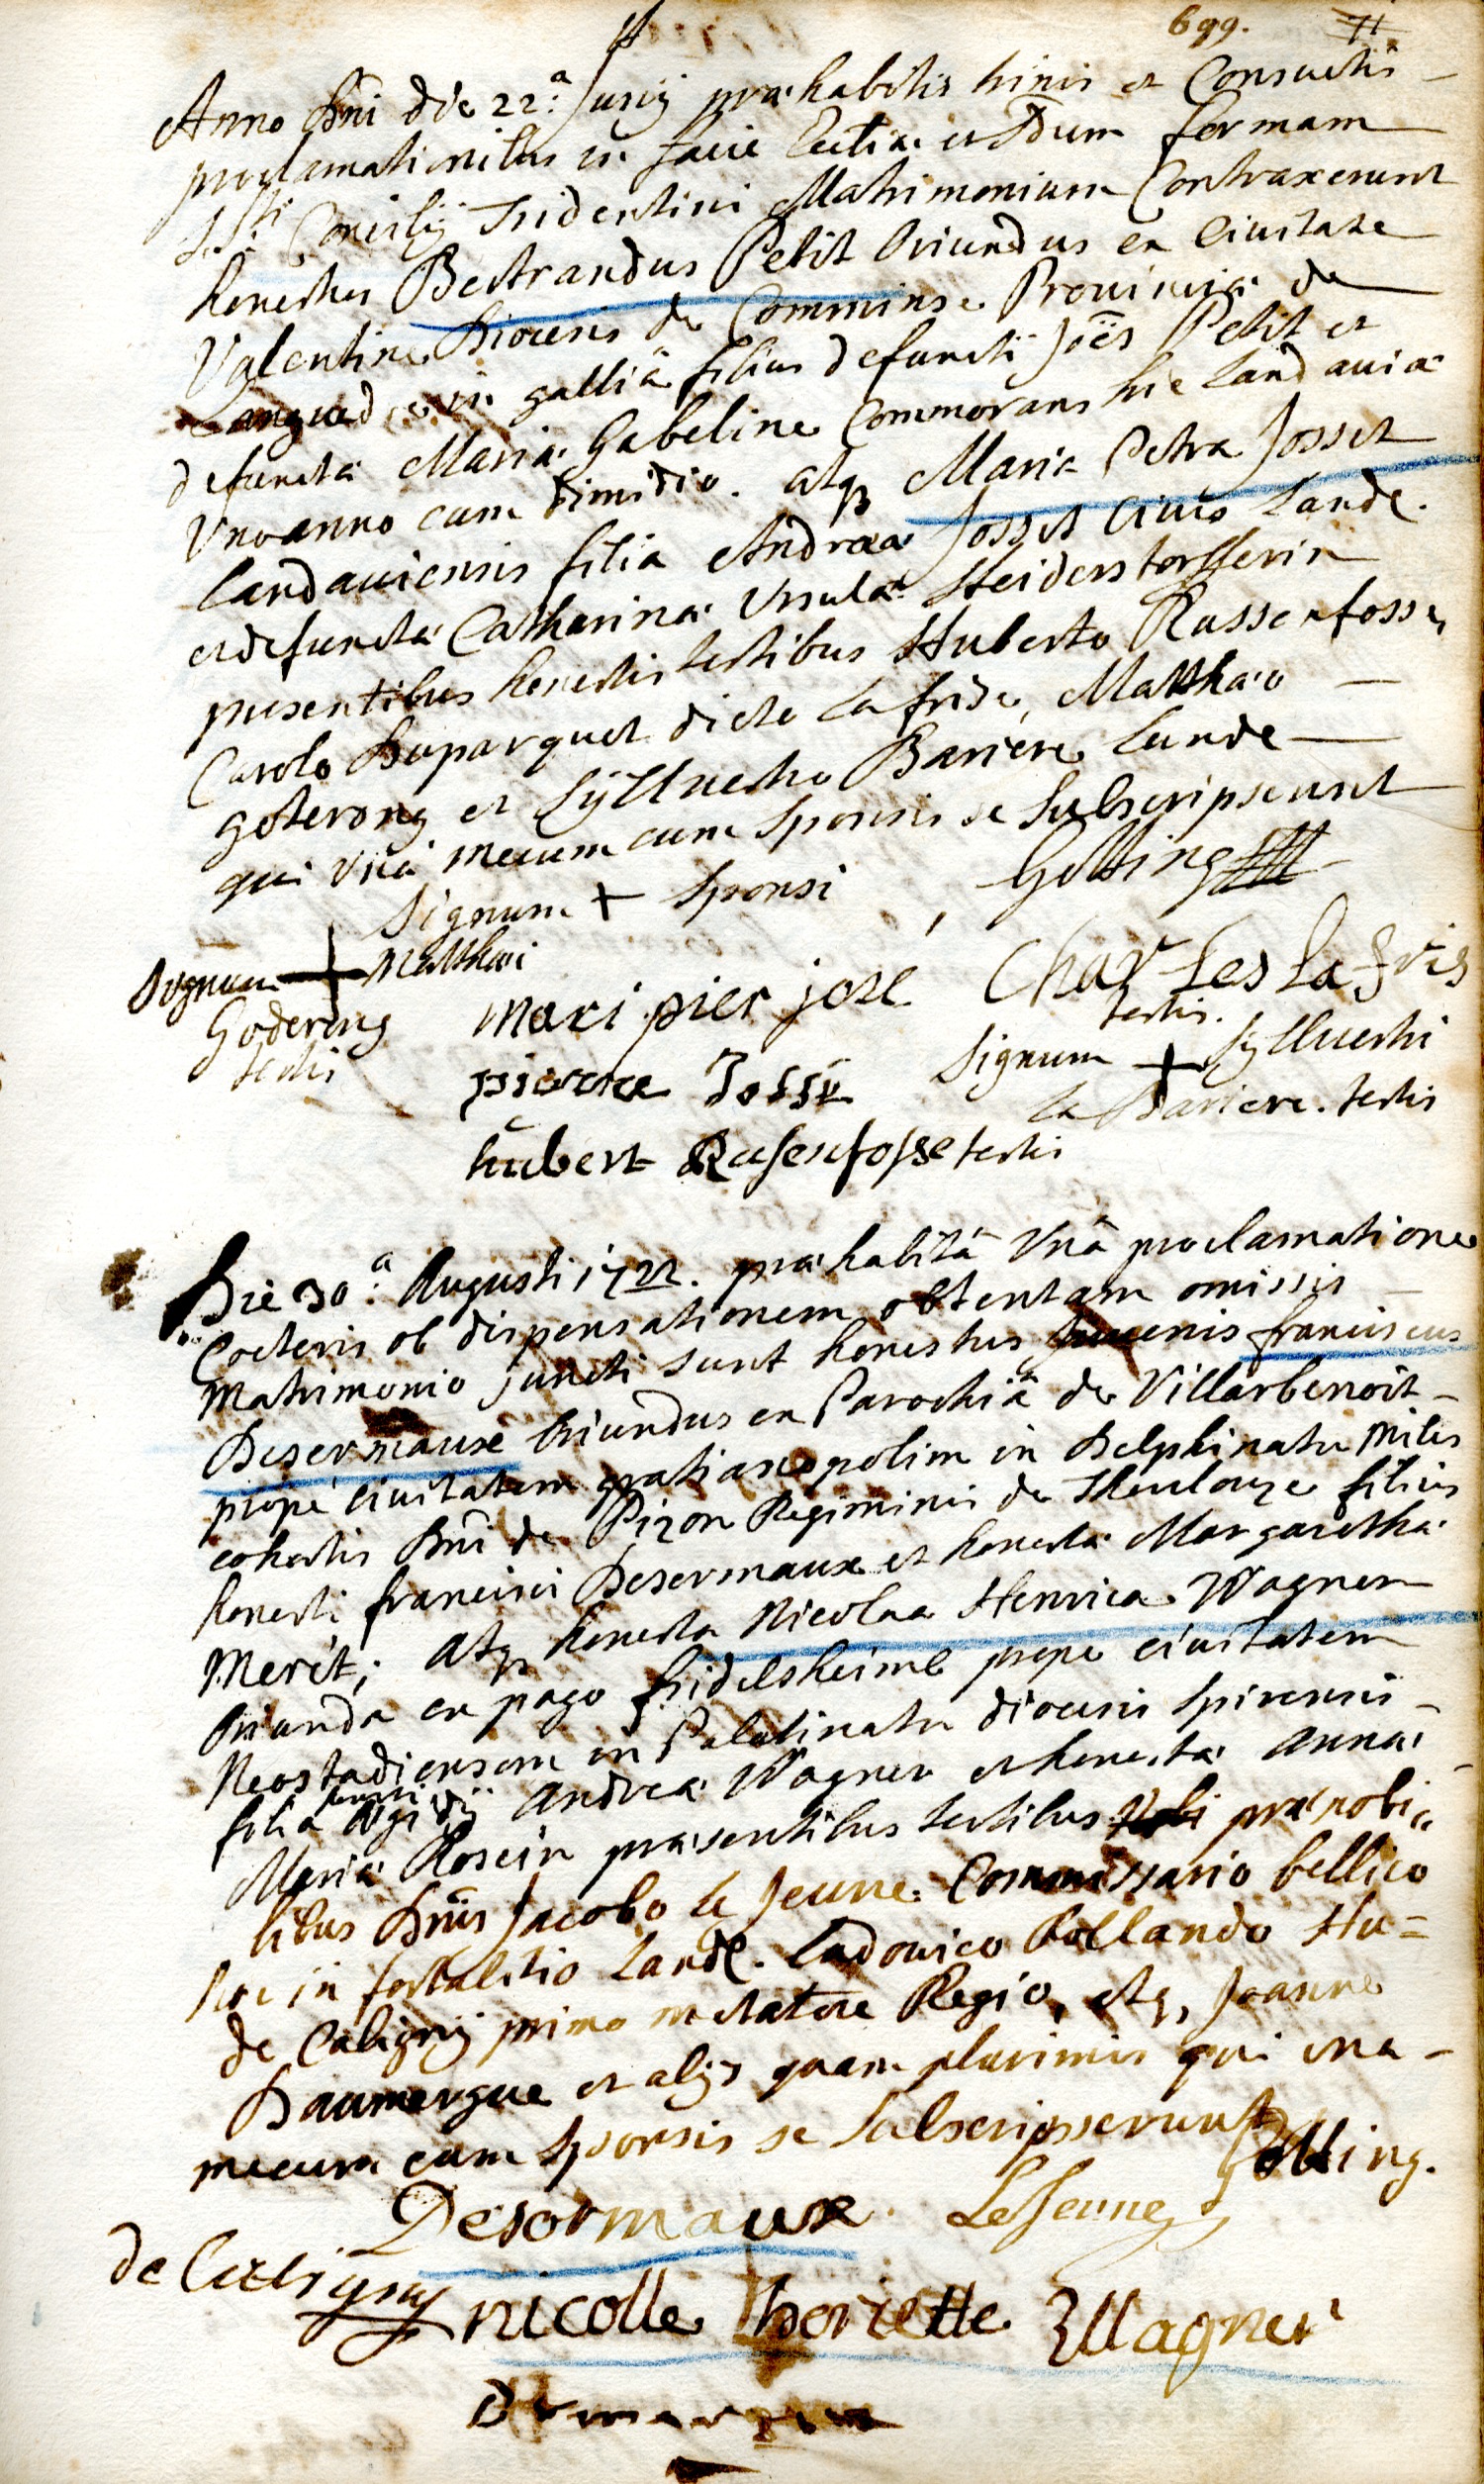 699. 71
Anno Dni die 22.a Junij præhabitis trinis et Consuetis
proclamationibus in facie Ecclīæ et Sdum formam
S.Sti Concilij Tridentini Matrimonium Contraxerunt
honestus Bertrandus Petit Oriundus ex Ciuitate
Valentine Diocesis de Comminse Prouinciæ de
Langued in galliâ filius defuncti Jõis Petit et
defunctæ Mariæ Gabeline Commorans hic Landauiæ
Vno anno cum dimidio. atq3 Maria Petra Josset
Landauiensis filia Andreæ Josset Ciuis Lande.
et defunctæ Catharinæ Vrsulæ Heiderstorfferin
presentibus honestis testibus Huberto Rassenfosse,
Carolo Duparquet dicto la frise, Matthæo
goterong et Syluestro Bariere Lande
qui vnâ mecum cum Sponsis se Subscripserunt
Signum + Sponsi Gotting
Signum + Matthæi
Goderong
testis
mari pier jose
Charles La fris
testis.
pierre Josse
Signum + Syluestri
la Bariere. testis
hubert Rasenfosse testis
Die 30.a Augusti 1722. præhabitâ Vnâ proclamatione
Cæteris ob dispensationem obtentam omissis
Matrimonio juncti sunt honestus Juuenis franciscus
Desermaux Oriundus ex Parochiâ de Villarbenoit
propè ciuitatem gratianopolim in Delphinatu Miles
cohortis Dni de Pizon Regiminis de Thoulouze filius
honesti francisci Desermaux et honestæ Margarethæ
Merit; atq3 honesta Nicolaa Henrica Wagner
Oriunda ex pago fridelsheimb prope ciuitatem
Neostadiensem in Palatinatu diocesis Spirensis
filia honesti Andreæ Wagner et honestæ Annæ
Mariæ Rosein præsentibus testibus prænobi„
libus Dnis Jacobo le Jeune Commissario bellico
hoc in fortalitio Land. Ludouico Rollando Hu=
de Caligny primo metatore Regio, atq, Joanne
Daumergue et alijs quam plurimis qui vna
mecum cum Sponsis se Subscripserunt Gotting.
Desormaux. LeJeune
de Caligny
nicolle heriette Wagner